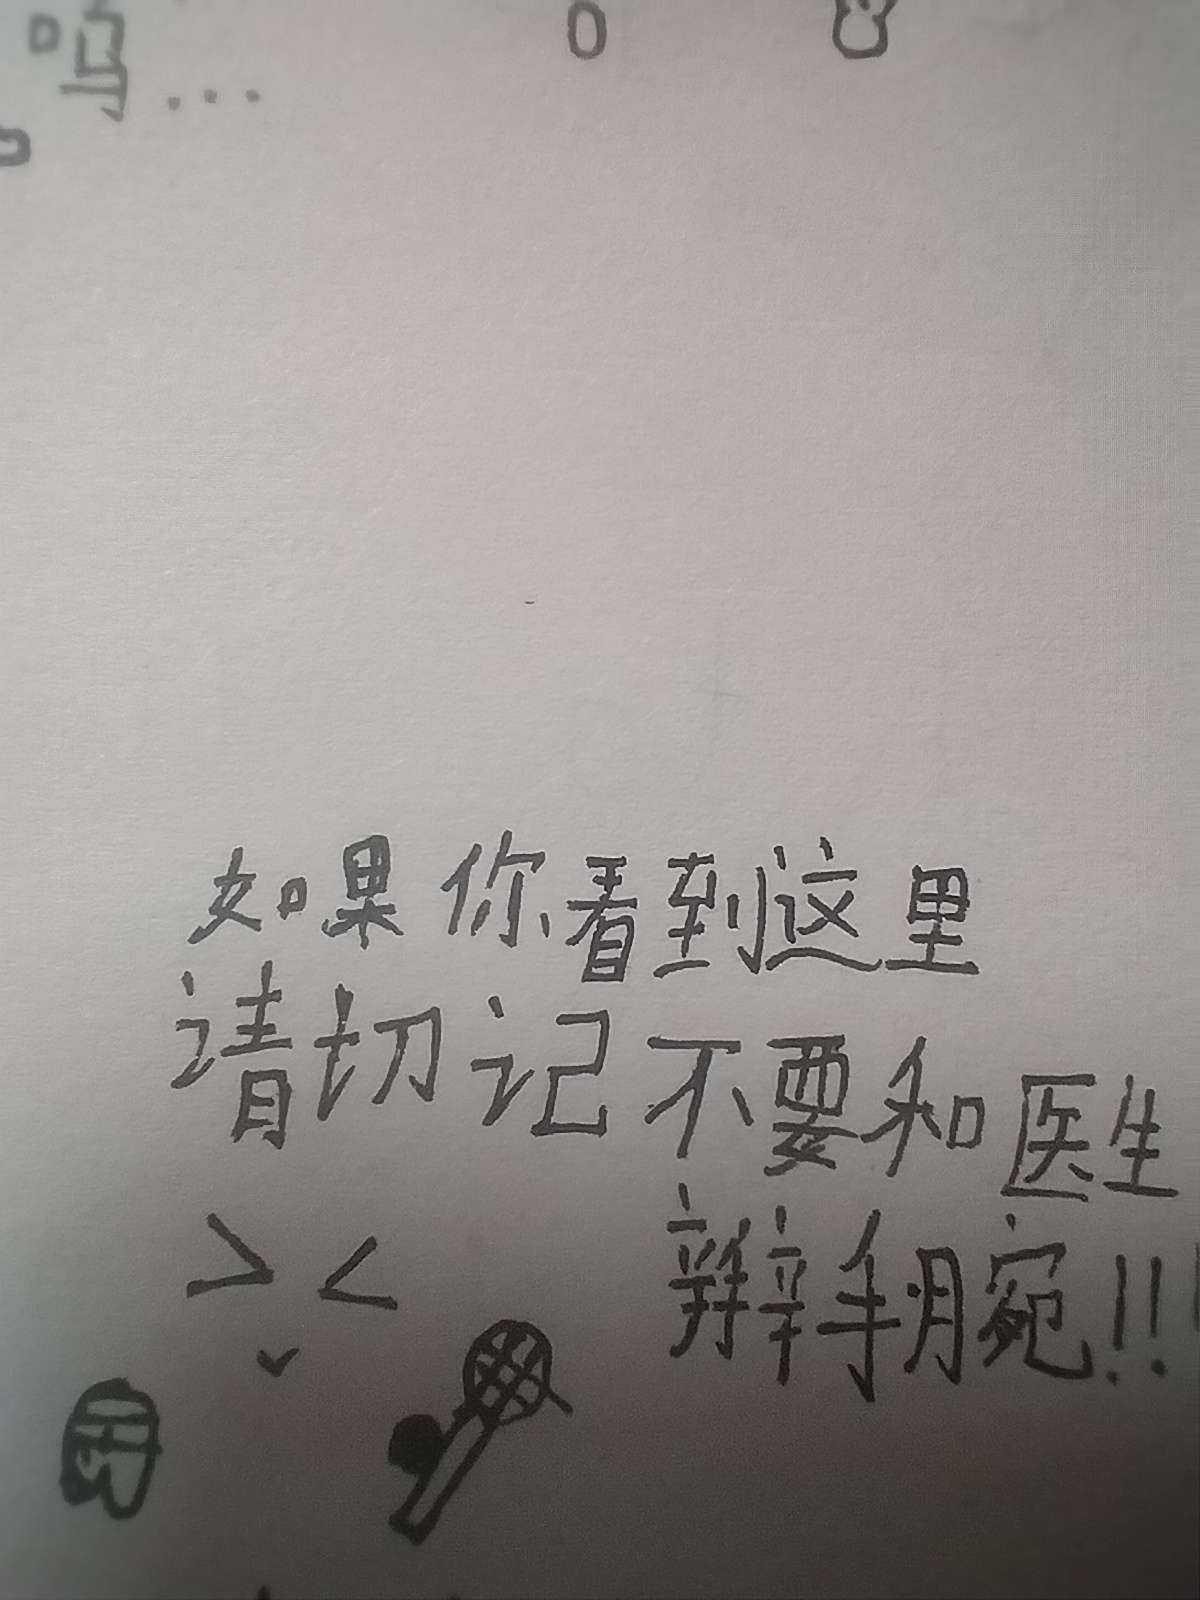 呜...
如果你看到这里
请切记不要和医生
辩手腕!!!